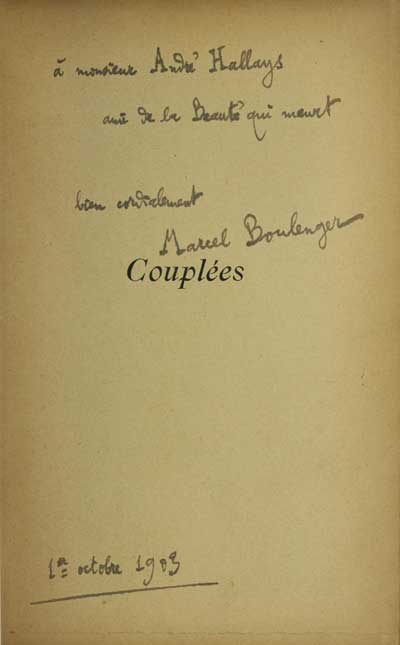 à monsieur André Hallays
ami de la Beauté qui meurt
bien cordialement
Marcel Boulenger
Couplées
1er octobre 1903